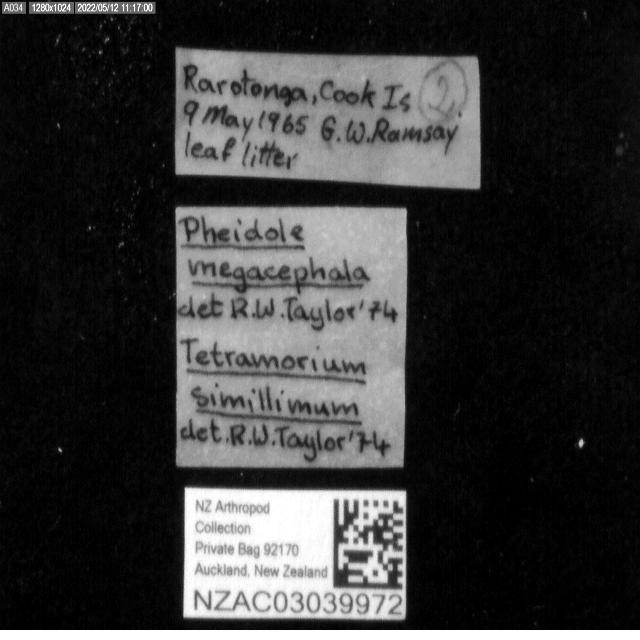 A034 1280x1024 2022/05/12 11:17:00
Rarotonga, Cook Is 2
9 May 1965 G.W.Ramsay
leaf litter
Pheidole
megacephala
det R.W.Taylor'74
Tetramorium
simillimum
det.R.W.Taylor'74
NZ Arthropod
Collection
Private Bag 92170
Auckland, New Zealand
NZAC03039972